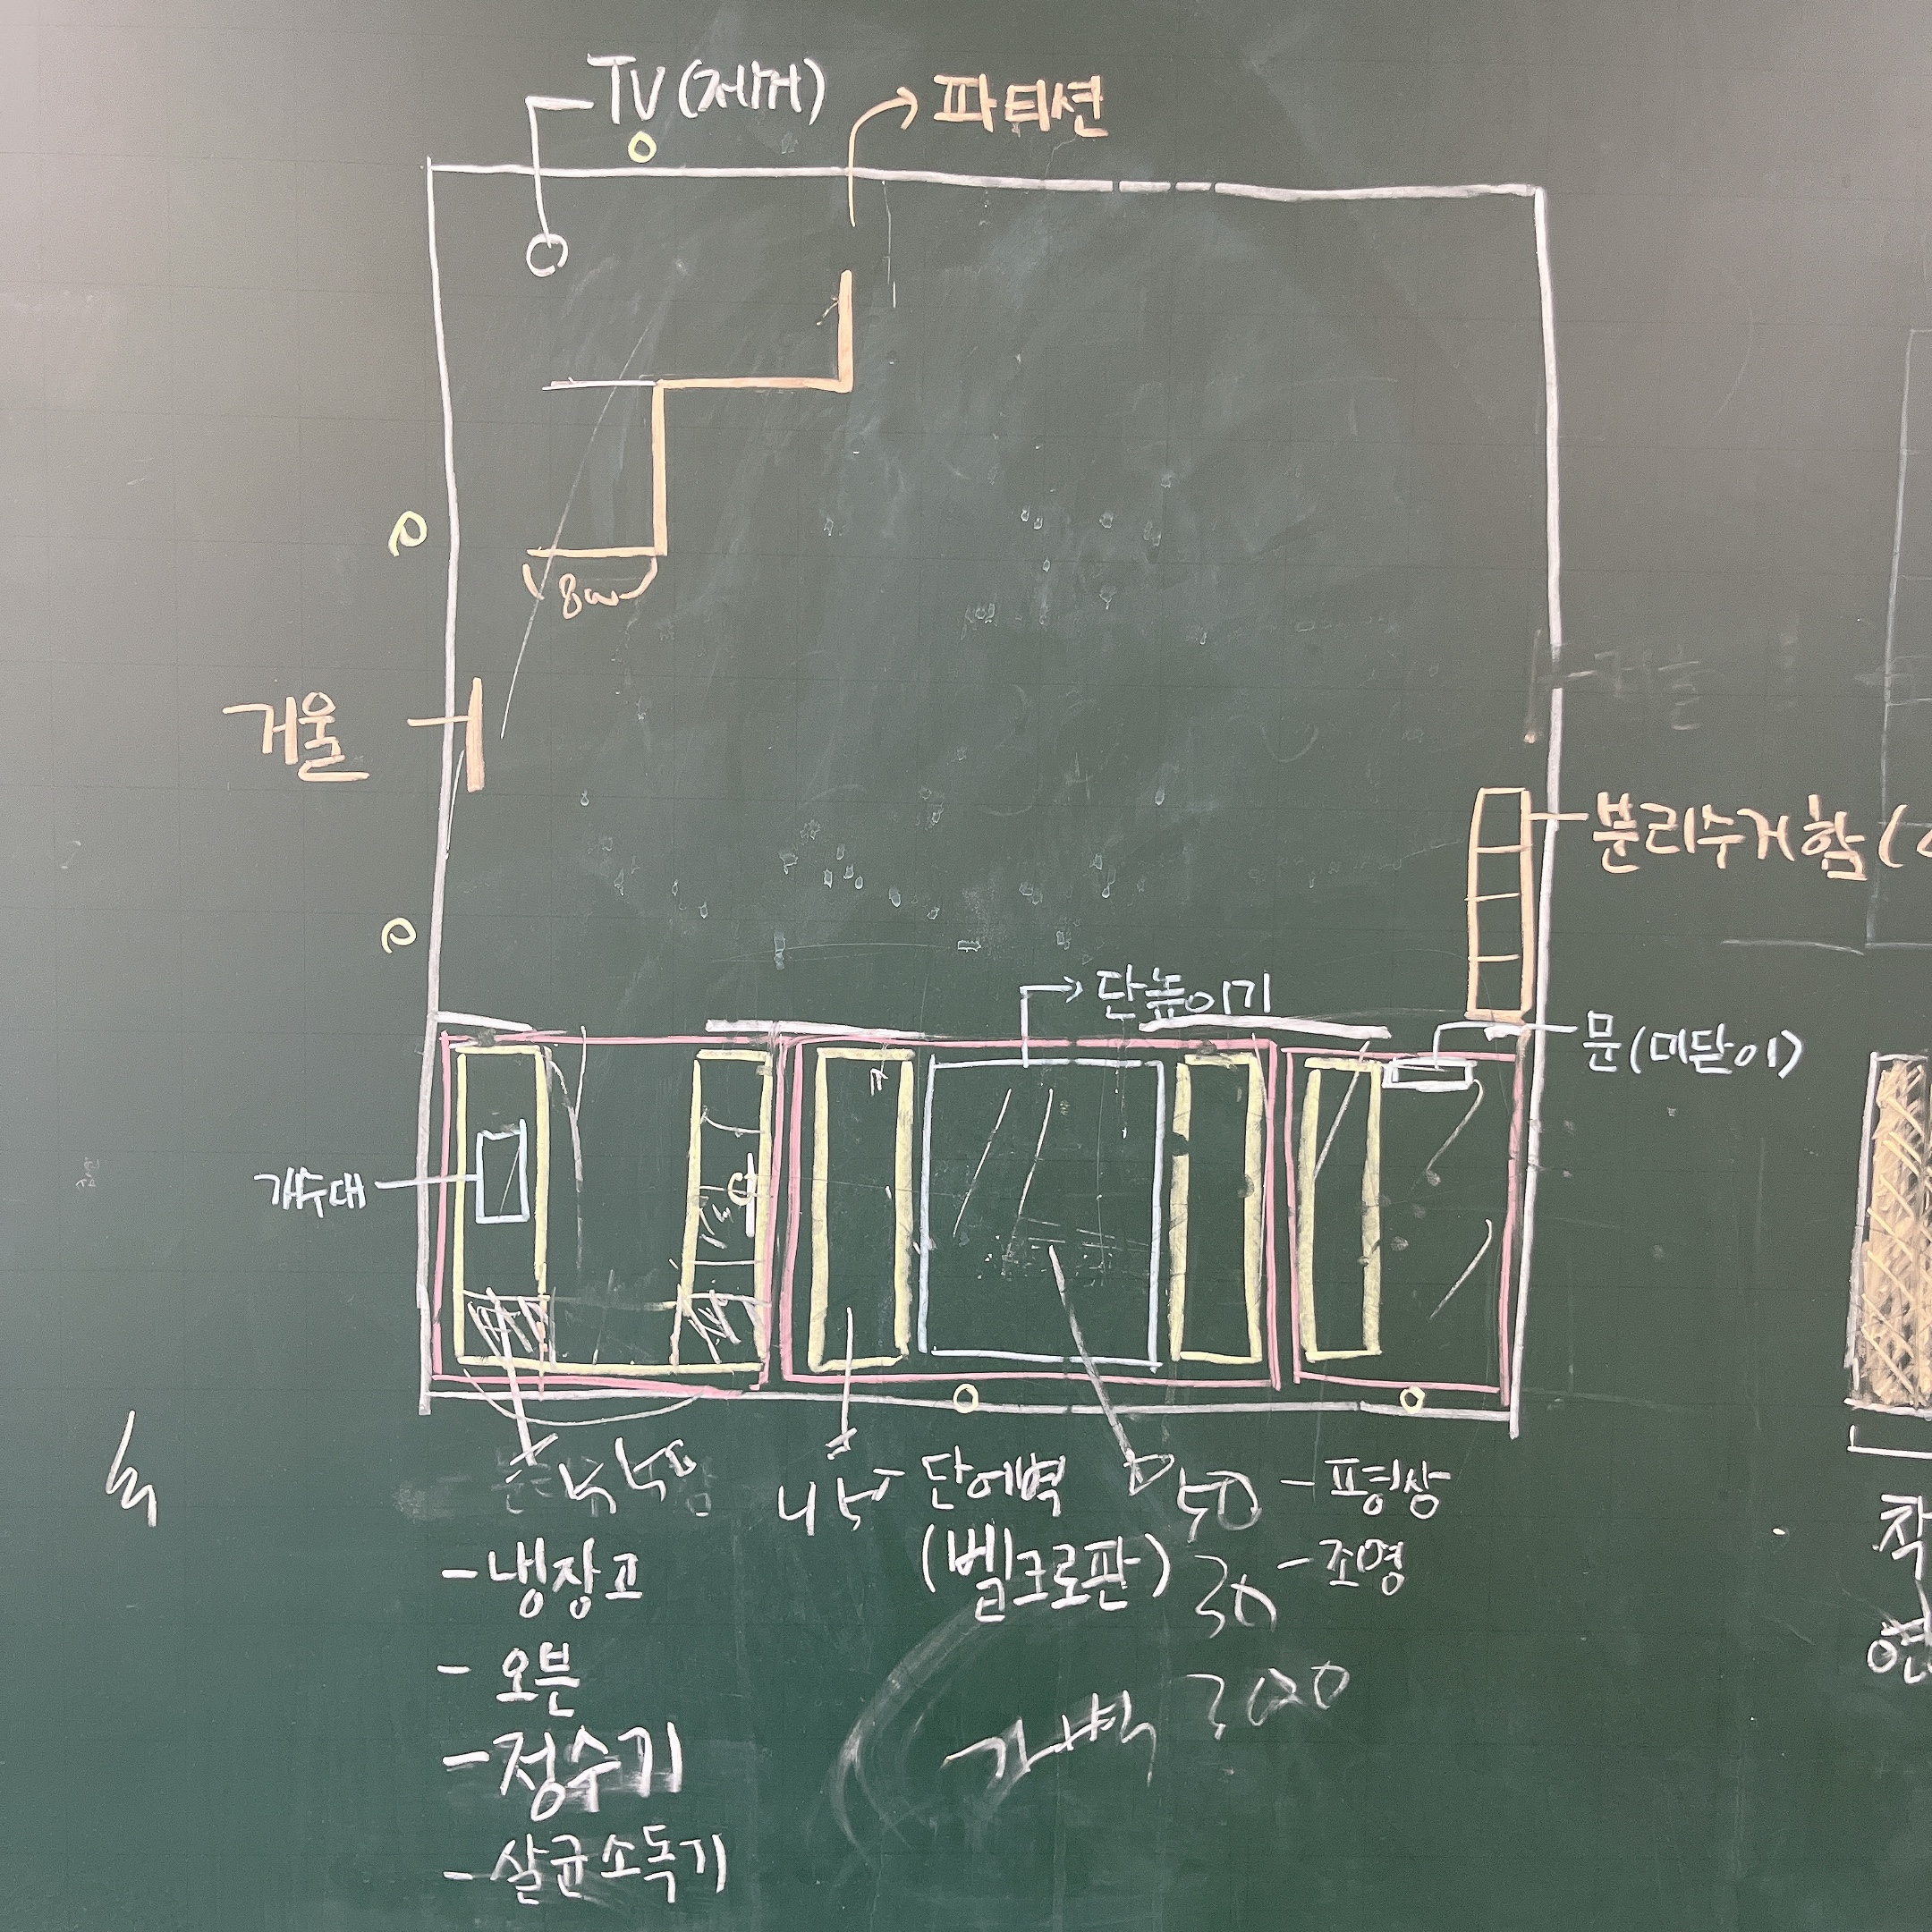 TV (제거)
파티션
거울
분리수거함 (
단높이기
문(미닫이)
개수대
단에벽
(벨크로판)
50
- 평상
30
- 조명
- 냉장고
- 오븐
가벽 300
- 정수기
- 살균소독기